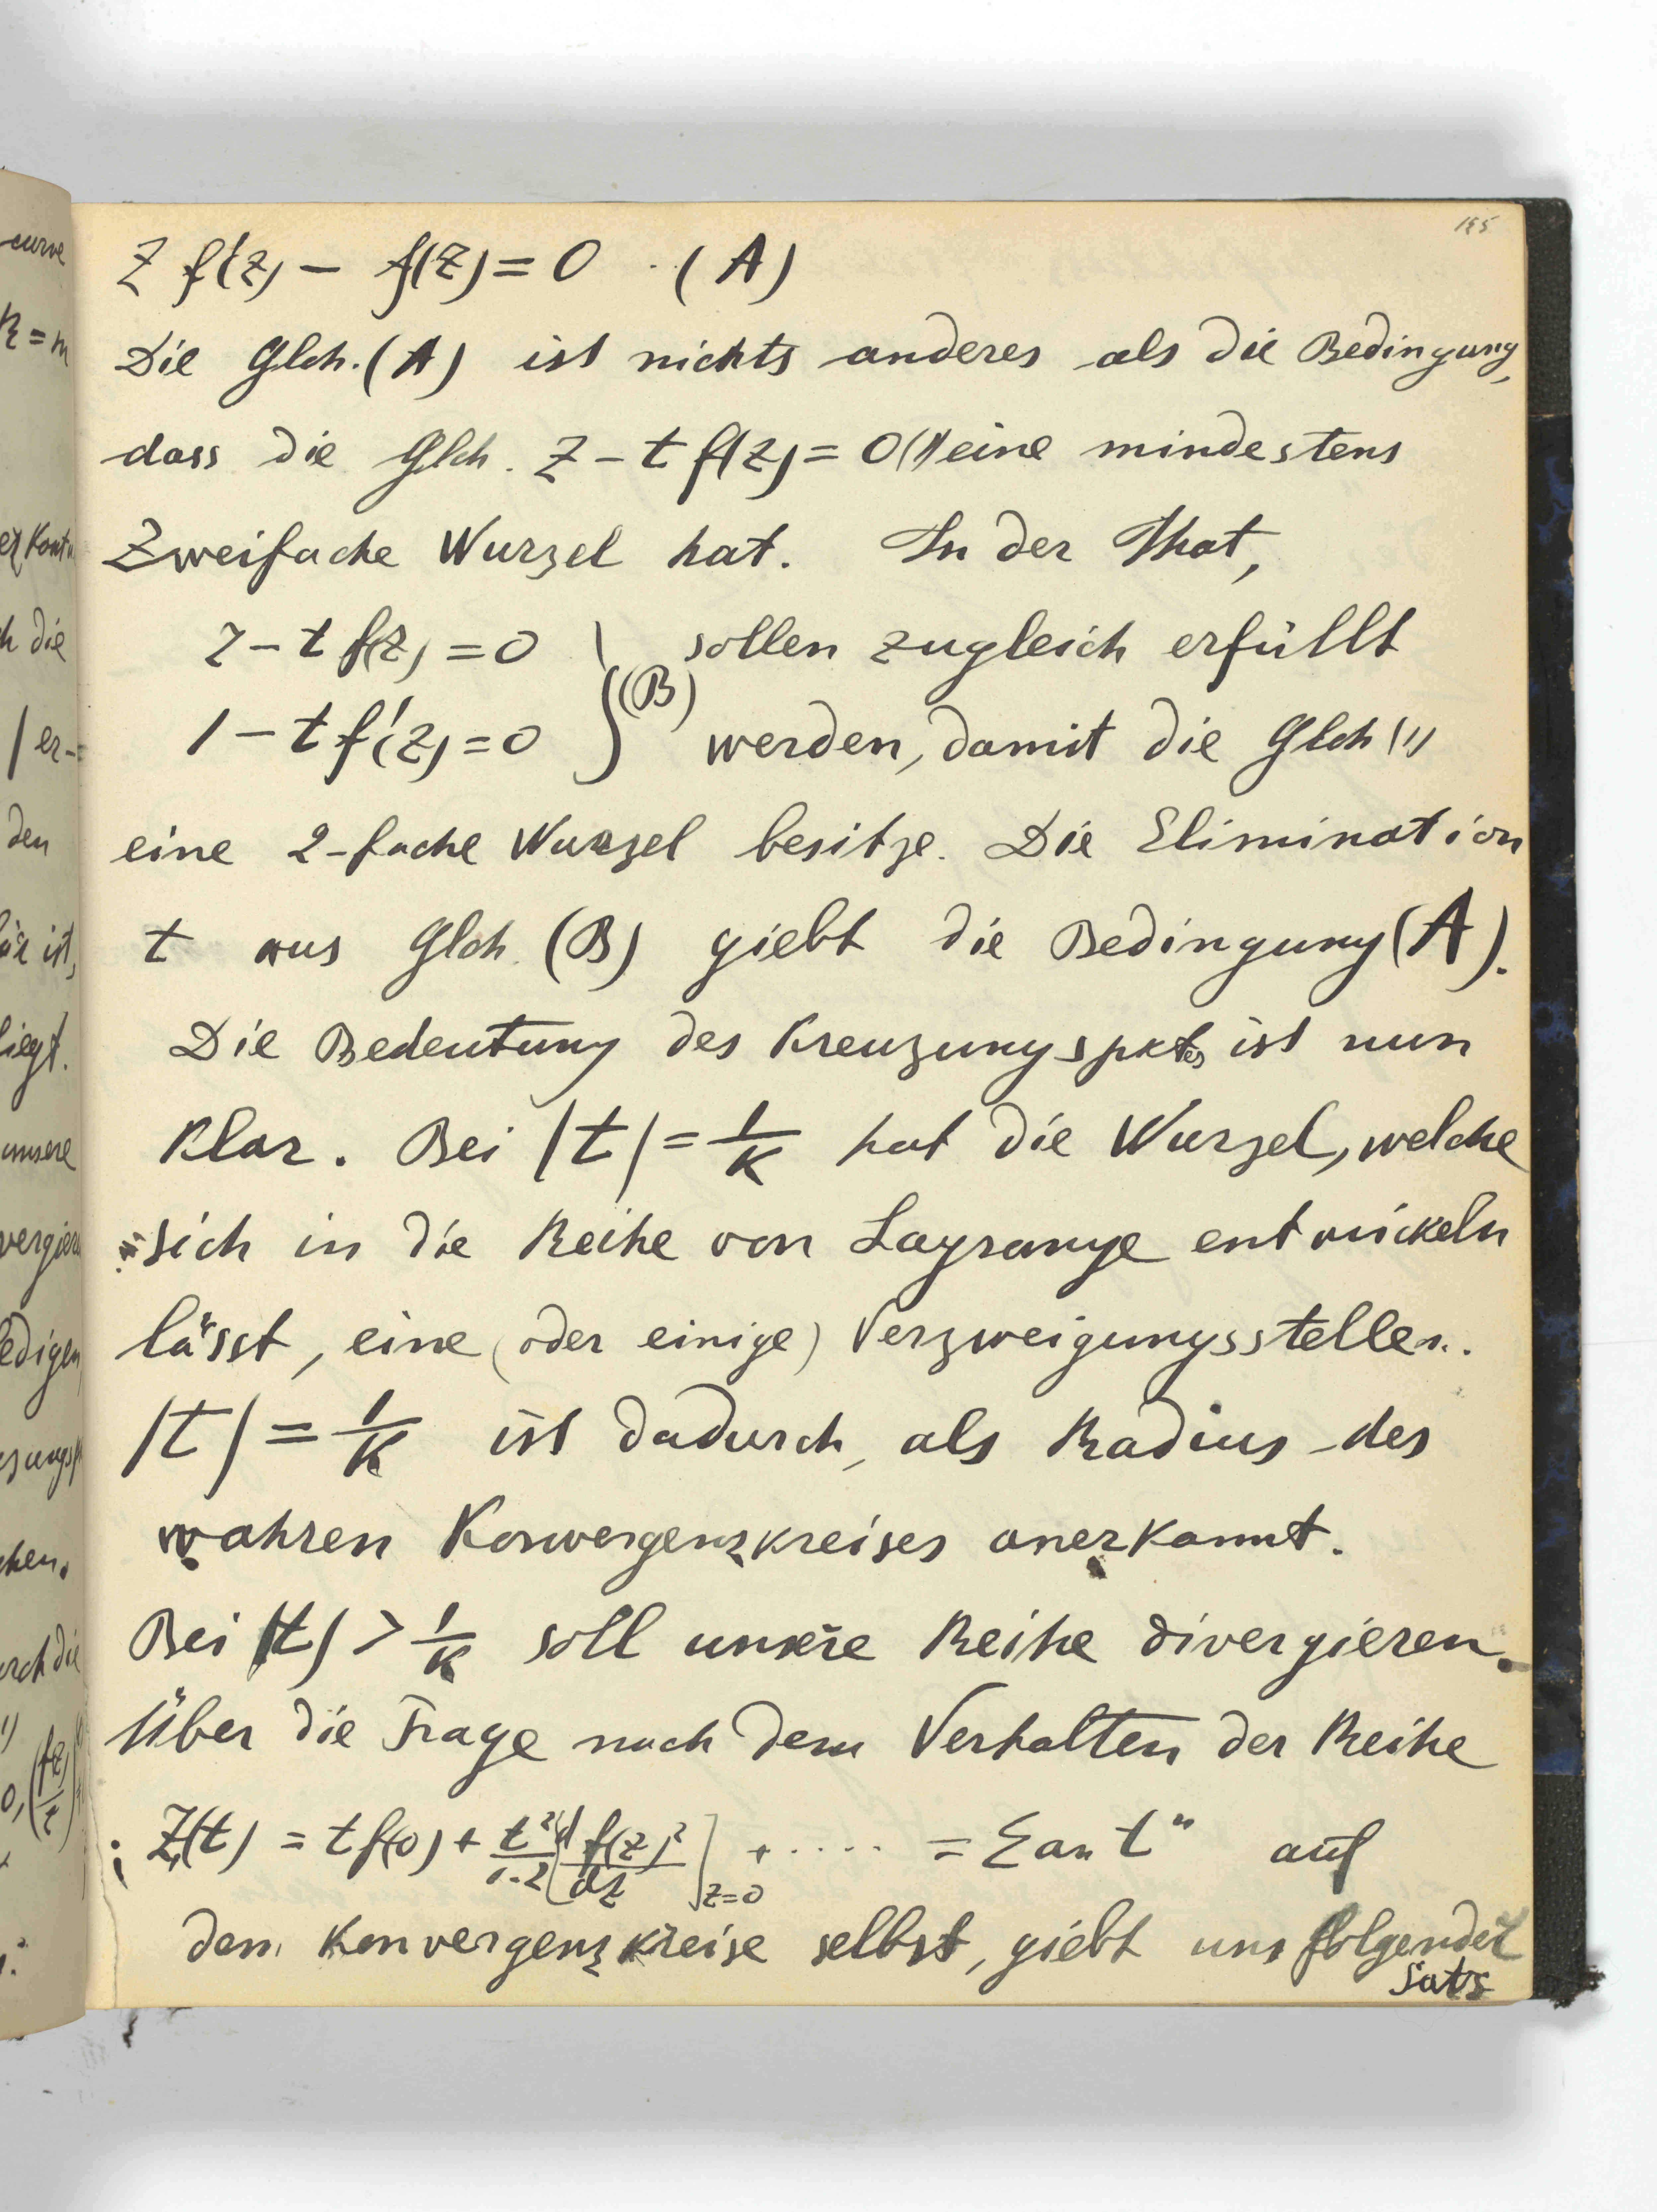 155
z f'(z) – f(z) = 0 (A)
Die Glch. (A) ist nichts anderes als die Bedingung,
dass die Glch. z – t f(z) = 0 (1) eine mindestens
Zweifache Wurzel hat. In der That,
z – t f(z) = 0 } sollen zugleich erfüllt
1 – t f'(z) = 0 } (B) werden, damit die Glch (1)
eine 2-fache Wurzel besitze. Die Elimination
t aus Glch. (B) giebt die Bedingung (A).
Die Bedeutung des Kreuzungspktes ist nun
klar. Bei |t| = 1/K hat die Wurzel, welche
sich in die Reihe von Lagrange entwickeln
lässt, eine (oder einige) Verzweigungsstellen.
|t| = 1/K ist dadurch, als Radius des
wahren Konvergenzkreises anerkannt.
Bei |t| > 1/K soll unsere Reihe divergieren.
Über die Frage nach dem Verhalten der Reihe
z₁(t) = t f(0) + t²/1·2 [d f(z)²/dz]z=0 + ····· = Σ an tⁿ auf
dem Konvergenzkreise selbst, giebt uns folgender
Satz